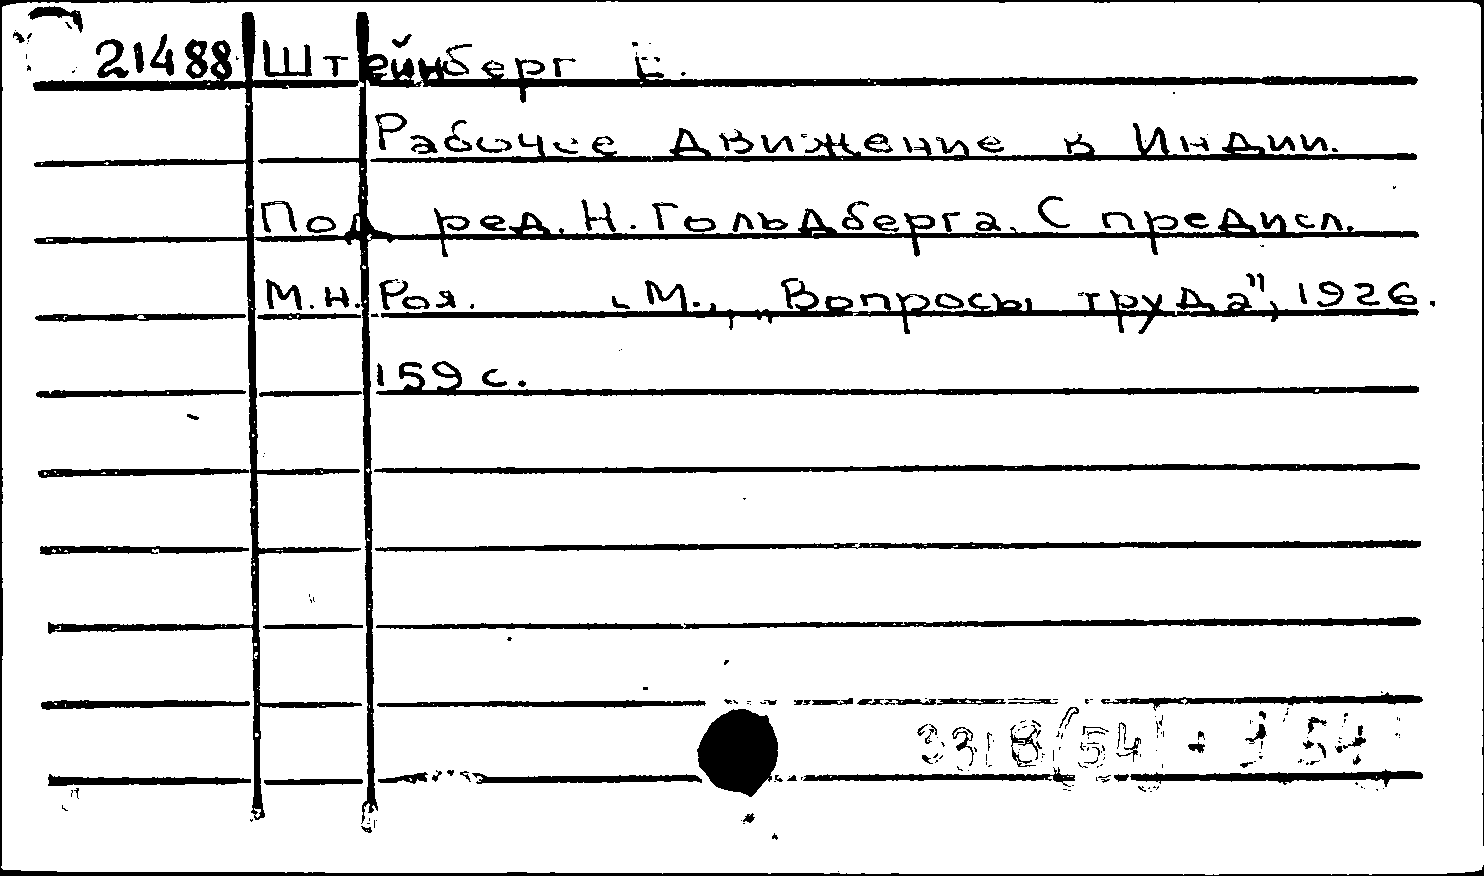 21488 Штейнберг Е.
Рабочее движение в Индии.
Под ред. Н. Гольдберга. С предисл.
М.Н. Роя. М., „Вопросы труда", 1926.
159 с.
331В(54)